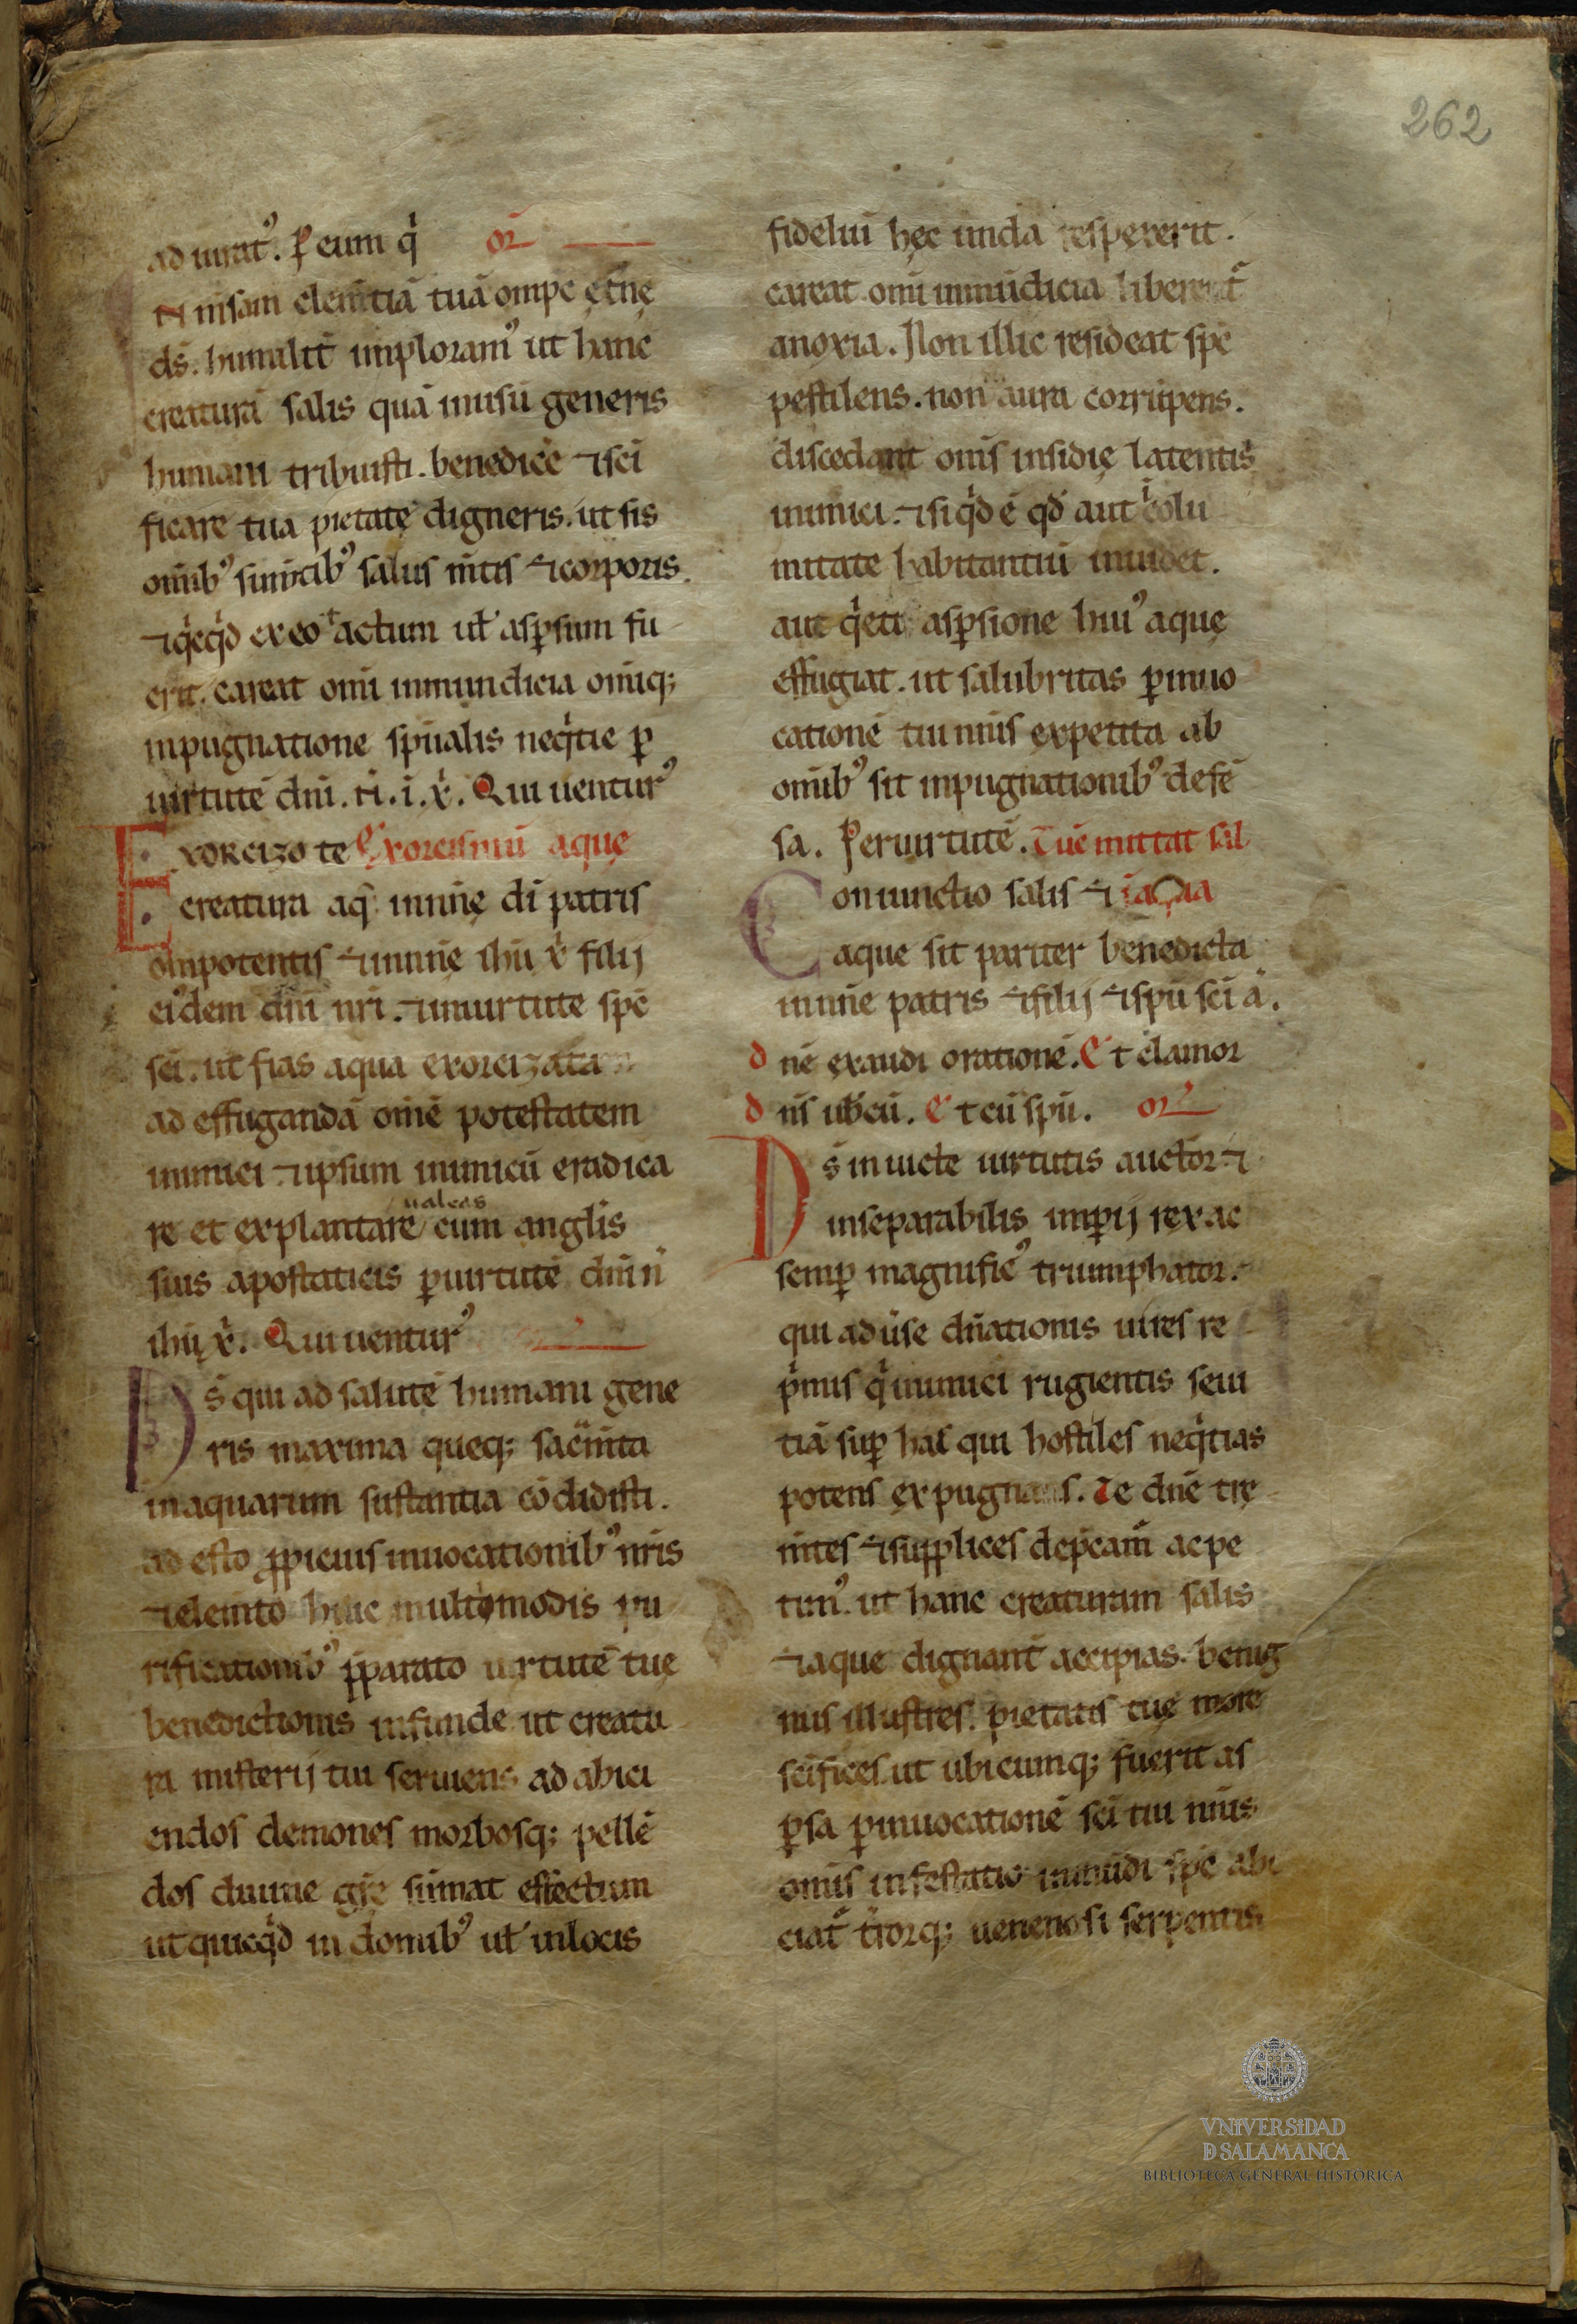 262
ad iurat᾽. ꝑ eum q̇ or̄
N insam clem̄tiā tuā omp̄c ęt̄nę
ds̄. humilit̄ imploram᾽ ut hanc
creaturā salis quā inusū generis
humani tribuisti. benedicē ⁊sc̄i
ficare tua pietate digneris. ut sis
omīb᾽ sumētib᾽ salus m̄tis ⁊corporis.
⁊q̇cq̇d exeo tactum ut̄ asꝑsum fu
erit. careat omī inmundicia omīq;
inpugnatione sp̄ualis neq̇tie ꝑ
uirtutē dn̄i. n̄i. i. x̄. Qui uentur᾽
EXORCIZO te Exorcismū aquę
creatura aq̄ innn̄ę dī patris
om̄ipotentis ⁊innn̄ę ihū x̄ filij
ei᾽dem dn̄i nr̄i. ⁊inuirtute sp̄c
sc̄i. ut fias aqua exorcizata
ad effugandā om̄ē potestatem
inimici ⁊ipsum inimicū eradica
re et explantare ualeas cum anglis̄
suis apostaticis ꝑuirtutē dn̄i n̄
ihū x̄. Qui uentur᾽
Ds̄ qui ad salutē humani gene
ris maxima queq; sac̄m̄ta
inaquarum sustantia cōdidisti.
ad esto ꝓpicius inuocationib᾽ nr̄is
⁊elem̄to huic multimodis pu
rificationib᾽ p̄parato uirtutē tuę
benedictionis infunde ut creatu
ra misterij tui seruiens ad abici
endos demones morbosq; pellē
dos diuine gr̄ę sūmat effectum
ut quicq̇d in domib᾽ ut̄ inlocis
fideliū hęc unda resperserit.
careat omī inmūdicia liberet᾽
anoxia. Non illic resideat sp̄c
pestilens. non aura corrūpens.
discedant om̄s insidię latentis
inimici. ⁊siq̇d ē qd̄ aut īcolu
mitate habitantiū inuidet.
aut q̇eti asꝑsione hui᾽ aquę
effugiat. ut salubritas ꝑinuo
cationē tui nn̄is expetita ab
omīb᾽ sit inpugnationib᾽ defē
sa. ꝑeruirtutē. Tūc mittat sal
Coniunctio salis ⁊ ī aq̄a
aque sit pariter benedicta
innn̄e patris ⁊filij ⁊sp̄ū sc̄i ā.
dn̄e exaudi orationē. Et clamor
dn̄s ub̄cū. Et cū sp̄ū. or̄
Ds̄ inuicte uirtutis auctor ⁊
inseparabilis imꝑij rex ac
semꝑ magnific᾽ triumphator.
qui aduse dn̄ationis uires re
p̄mis q̇ inimici rugientis seui
tiā suꝑ has qui hostiles neq̇tias
potens expugnas. Te dn̄e tre
m̄tes ⁊supplices dep̄cam̄ acpe
tim᾽. ut hanc creaturam salis
⁊aque dignant̄ accipias. benig
nus illustres. pietatis tuę more
sc̄ifices. ut ubicumq; fuerit as
ꝑsa ꝑinuocationē sc̄i tui nn̄is
omīs infestatio inmūdi sp̄c abi
ciat᾽ t̄rorq; uenenosi serpentis
VNIVERSIDAD
D SALAMANCA
BIBLIOTECA GENERAL HISTORICA